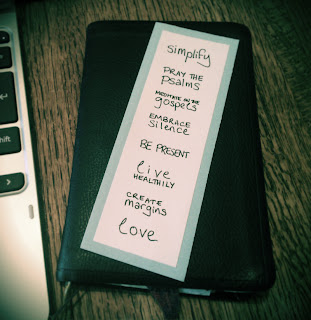 simplify
PRAY THE
psalms
MEDITATE ON THE
gospels
EMBRACE
silence
BE PRESENT
live
HEALTHILY
CREATE
margins
love
shift